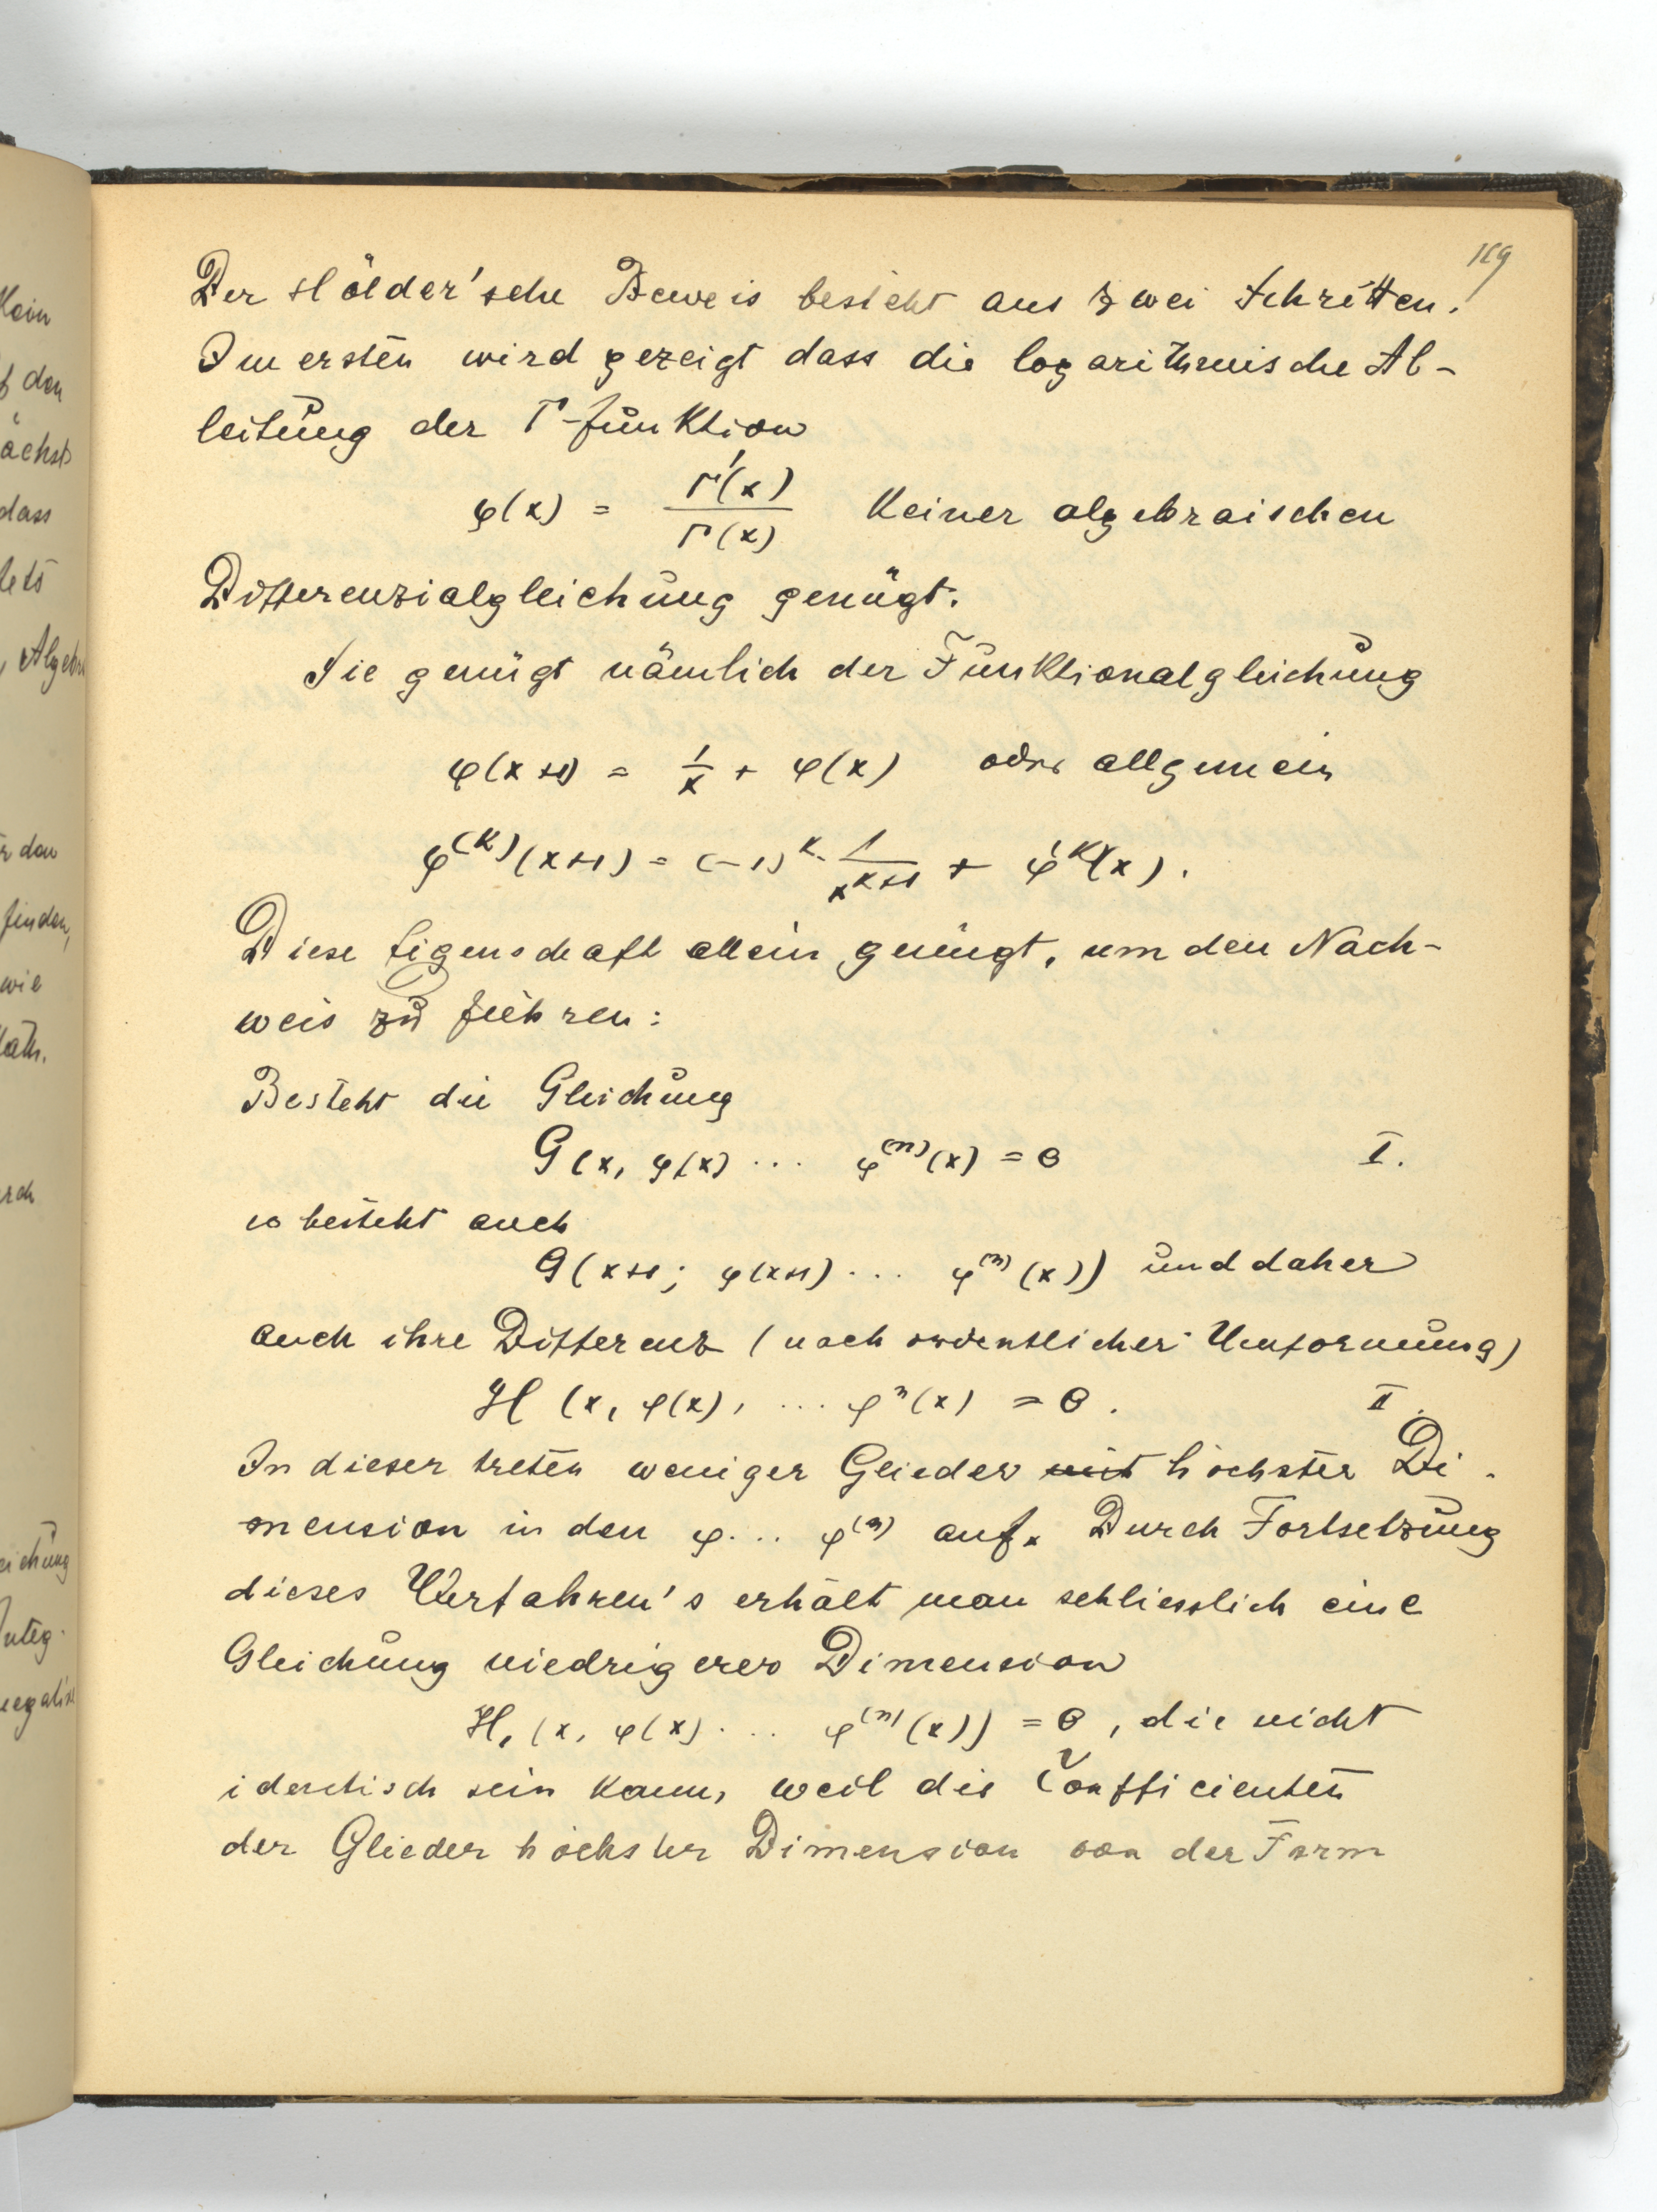 119
Der Hölder'sche Beweis besteht aus zwei Schritten.
Im ersten wird gezeigt dass die logarithmische Ab-
leitung der Γ-funktion
φ(x) = Γ'(x)/Γ(x) keiner algebraischen
Differenzialgleichung genügt.
Sie genügt nämlich der Funktionalgleichung
φ(x+1) = 1/x + φ(x) oder allgemein
φ^(k)(x+1) = (-1)^k · 1/x^{k+1} + φ^(k)(x).
Diese Eigenschaft allein genügt, um den Nach-
weis zu führen:
Besteht die Gleichung
G(x, φ(x) ... φ^(n)(x) = 0 I.
so besteht auch
G(x+1; φ(x+1) ... φ^(n)(x)) und daher
auch ihre Differenz (nach ordentlicher Umformung)
H (x, φ(x), ... φ^n(x) = 0. II.
In dieser treten weniger Glieder mit höchster Di-
mension in den φ... φ^(n) auf. Durch Fortsetzung
dieses Verfahren's erhält man schliesslich eine
Gleichung niedrigerer Dimension
H₁ (x, φ(x) ... φ^(n)(x)) = 0, die nicht
identisch sein kann, weil die Coefficienten
der Glieder höchster Dimension von der Form
Klein
f den
ächst
dass
, Algebra
finden,
wie
Math.